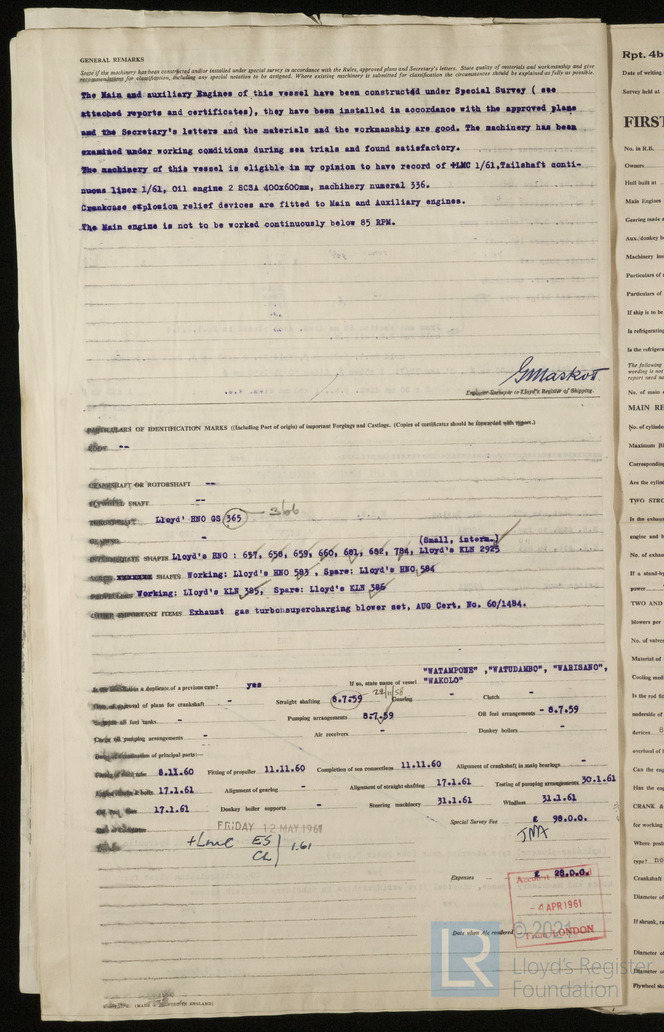 GENERAL REMARKS
State if the machinery has been constructed and/or installed under special survey in accordance with the Rules, approved plans and Secretary's letters. State quality of materials and workmanship and give
recommendations for classification, including any special notation to be assigned. Where existing machinery is submitted for classification the circumstances should be explained as fully as possible.
The Main and auxiliary Engines of this vessel have been constructed under Special Survey ( see
attached reports and certificates), they have been installed in accordance with the approved plans
and the Secretary's letters and the materials and the workmanship are good. The machinery has been
examined under working conditions during sea trials and found satisfactory.
The machinery of this vessel is eligible in my opinion to have record of +LMC 1/61, Tailshaft conti-
nuous liner 1/61, Oil engine 2 SCSA 400x600mm, machinery numeral 336.
Crankcase explosion relief devices are fitted to Main and Auxiliary engines.
The Main engine is not to be worked continuously below 85 RPM.
GMaskot
Engineer Surveyor to Lloyd's Register of Shipping.
PARTICULARS OF IDENTIFICATION MARKS (Including Port of origin) of important Forgings and Castings. (Copies of certificates should be forwarded with report.)
--
CRANKSHAFT OR ROTORSHAFT --
FLYWHEEL SHAFT --
Lloyd' HNO GS 365 - 366
GEARING -
(Small, interm.)
INTERMEDIATE SHAFTS Lloyd's HNO : 657, 658, 659, 660, 681, 682, 784, Lloyd's KLN 2925
SHAFTS Working: Lloyd's HNO 583 , Spare: Lloyd's HNO 584
PROPELLERS Working: Lloyd's KLN 385, Spare: Lloyd's KLN 386
OTHER IMPORTANT ITEMS Exhaust gas turbonsupercharging blower set, AUG Cert. No. 60/1484.
"WATAMPONE" ,"WATUDAMBO", "WARISANO",
Is the installation a duplicate of a previous case? yes If no, state name of vessel "WAKOLO"
28/11/58
Date of approval of plans for crankshaft - Straight shafting 8.7.59 Gearing - Clutch -
Separate oil fuel tanks - Pumping arrangements 8.7.59 Oil fuel arrangements - 8.7.59
Cargo oil pumping arrangements - Air receivers - Donkey boilers -
Dates of examination of principal parts:—
Fitting of stern tube 8.11.60 Fitting of propeller 11.11.60 Completion of sea connections 11.11.60 Alignment of crankshaft in main bearings -
Engine chocks & bolts 17.1.61 Alignment of gearing - Alignment of straight shafting 17.1.61 Testing of pumping arrangements 30.1.61
Oil fuel lines 17.1.61 Donkey boiler supports - Steering machinery 31.1.61 Windlass 31.1.61
FRIDAY 12 MAY 1961
Special Survey Fee £ 98.0.0.
+LMC ES
CL 1.61
JMA
Expenses £ 28.0.0.
- 4 APR 1961
Date when A/c rendered
LONDON
(MADE & PRINTED IN ENGLAND)
© 2021
LR
Lloyd's Register
Foundation
Rpt. 4b
Date of writing
Survey held at
FIRST
No. in R.B.
Owners
Hull built at
Main Engines
Gearing made
Aux./donkey b
Machinery ins
Particulars of
Particulars of
If ship is to be
Is refrigerating
Is the refrigera
The following
wording is not
report need no
No. of main
MAIN RE
No. of cylinde
Maximum B
Corresponding
Are the cylind
TWO STRO
Is the exhaus
engine and b
No. of exhau
If a stand-by
power
TWO AND
blowers per
No. of valve
Material of
Cooling med
Is the rod fit
underside of
devices
overhead of
Can the eng
Has the eng
CRANK &
for working
Where posit
type? no
Crankshaft
Diameter of
If shrunk, ra
Diameter of
Diameter of
Flywheel sha